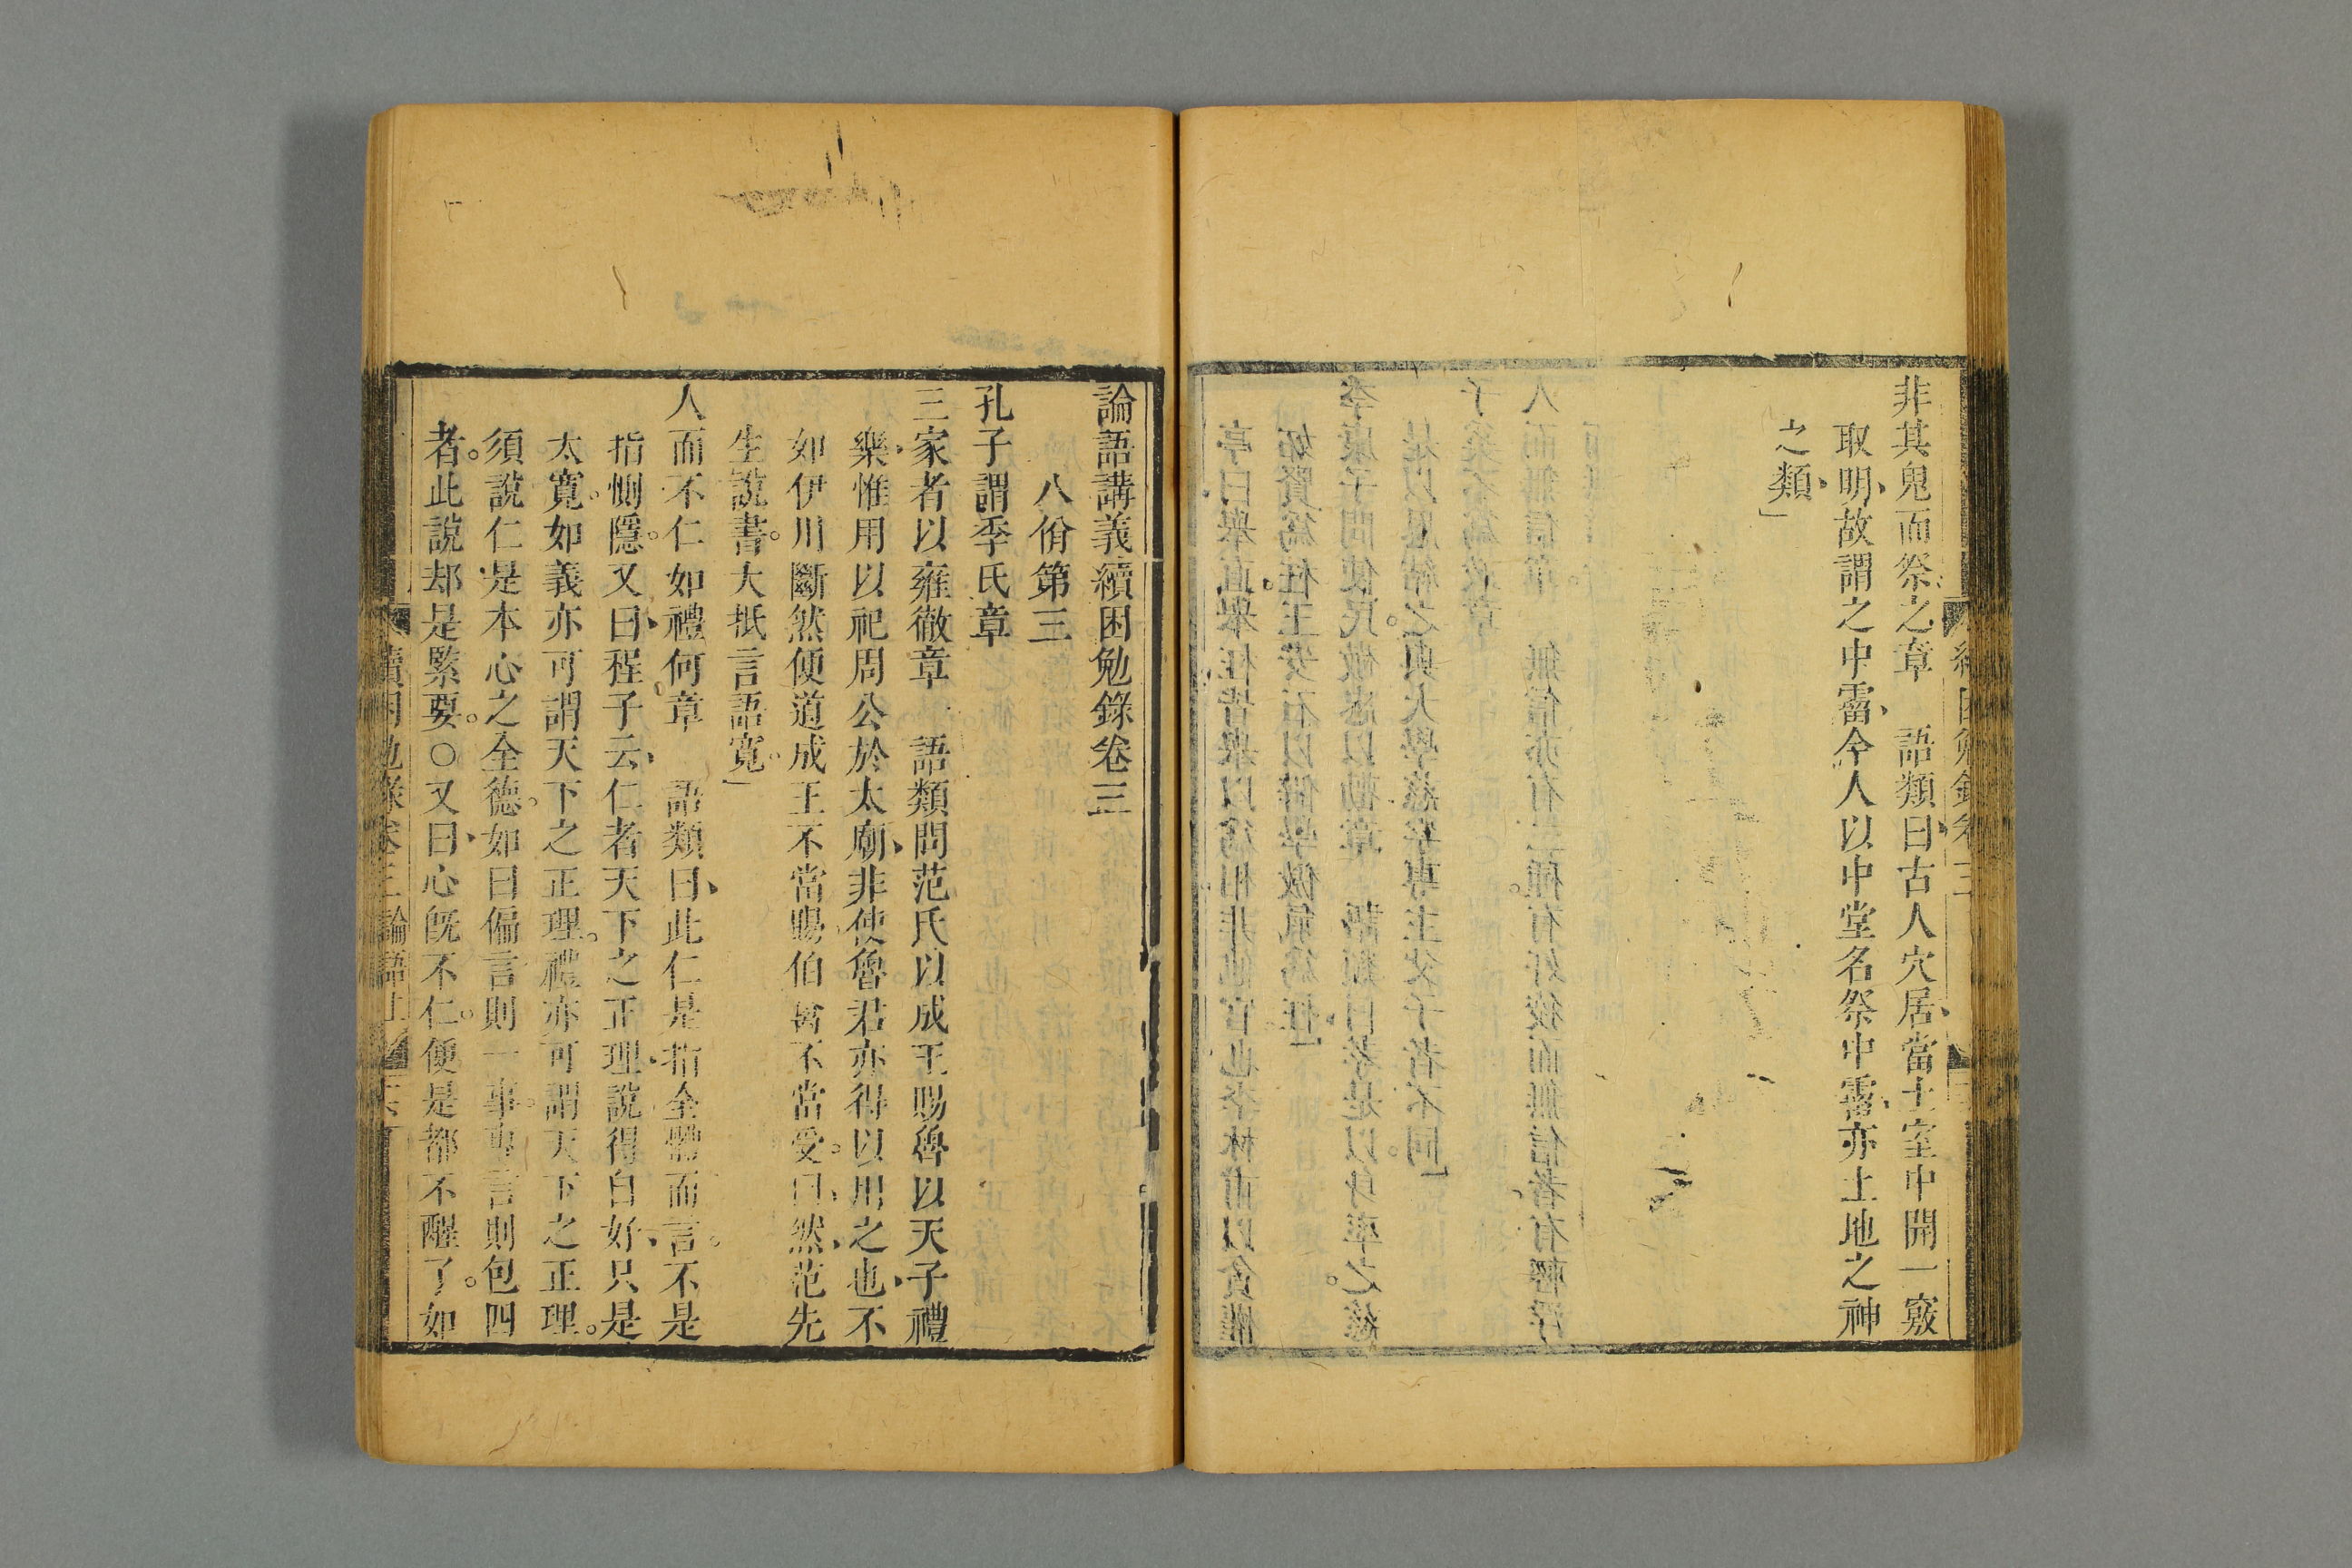 非其鬼而祭之章　語類曰古人穴居當土室中開一竅
取明故謂之中霤今人以中堂名祭中霤亦土地之神
之類」
論語講義續困勉錄卷三
八佾第三
孔子謂季氏章
三家者以雍徹章　語類問范氏以成王賜魯以天子禮
樂惟用以祀周公於太廟非使魯君亦得以用之也不
如伊川斷然便道成王不當賜伯禽不當受曰然范先
生說書大抵言語寬」
人而不仁如禮何章　語類曰此仁是指全體而言不是
指惻隱又曰程子云仁者天下之正理說得自好只是
太寬如義亦可謂天下之正理禮亦可謂天下之正理
須說仁是本心之全德如曰偏言則一事專言則包四
者此說却是緊要○又曰心旣不仁便是都不醒了如
續困勉錄卷三論語上